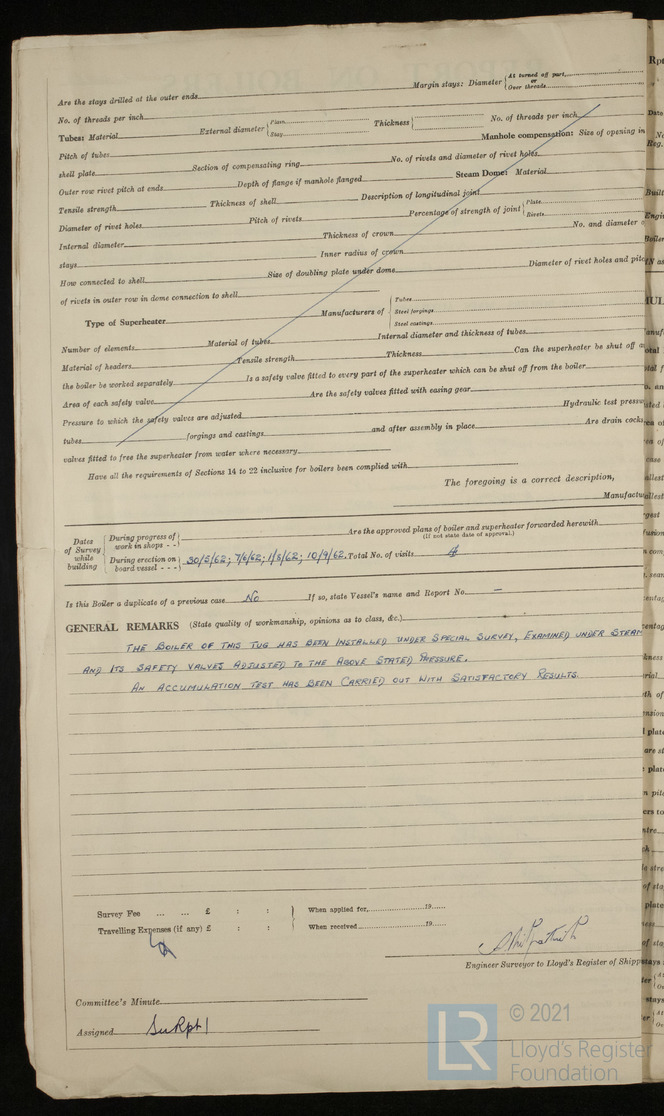 Are the stays drilled at the outer ends Margin stays: Diameter At turned off part, or Over threads
No. of threads per inch Thickness No. of threads per inch
Tubes: Material External diameter Plain Stay Manhole compensation: Size of opening in
Pitch of tubes
shell plate Section of compensating ring No. of rivets and diameter of rivet holes
Outer row rivet pitch at ends Depth of flange if manhole flanged Steam Dome: Material
Tensile strength Thickness of shell Description of longitudinal joint
Diameter of rivet holes Pitch of rivets Percentage of strength of joint Plate Rivets
Internal diameter Thickness of crown No. and diameter o
stays Inner radius of crown
How connected to shell Size of doubling plate under dome Diameter of rivet holes and pitc
of rivets in outer row in dome connection to shell
Type of Superheater Manufacturers of Tubes Steel forgings Steel castings
Number of elements Material of tubes Internal diameter and thickness of tubes
Material of headers Tensile strength Thickness Can the superheater be shut off a
the boiler be worked separately Is a safety valve fitted to every part of the superheater which can be shut off from the boiler
Area of each safety valve Are the safety valves fitted with easing gear
Pressure to which the safety valves are adjusted Hydraulic test pressu
tubes forgings and castings and after assembly in place Are drain cocks
valves fitted to free the superheater from water where necessary
Have all the requirements of Sections 14 to 22 inclusive for boilers been complied with
The foregoing is a correct description,
Manufactu
Dates of Survey while building During progress of work in shops - - Are the approved plans of boiler and superheater forwarded herewith
(If not state date of approval.)
During erection on board vessel - - - 30/5/62; 7/6/62; 1/8/62; 10/9/62. Total No. of visits 4
Is this Boiler a duplicate of a previous case No If so, state Vessel's name and Report No. –
GENERAL REMARKS (State quality of workmanship, opinions as to class, &c.)
THE BOILER OF THIS TUG HAS BEEN INSTALLED UNDER SPECIAL SURVEY, EXAMINED UNDER STEAM
AND ITS SAFETY VALVES ADJUSTED TO THE ABOVE STATED PRESSURE.
AN ACCUMULATION TEST HAS BEEN CARRIED OUT WITH SATISFACTORY RESULTS.
Survey Fee ... ... £ : : When applied for, 19
Travelling Expenses (if any) £ : : When received 19
Engineer Surveyor to Lloyd's Register of Shipp
Committee's Minute
Assigned See Rpt 1
© 2021
LR Lloyd's Register
Foundation